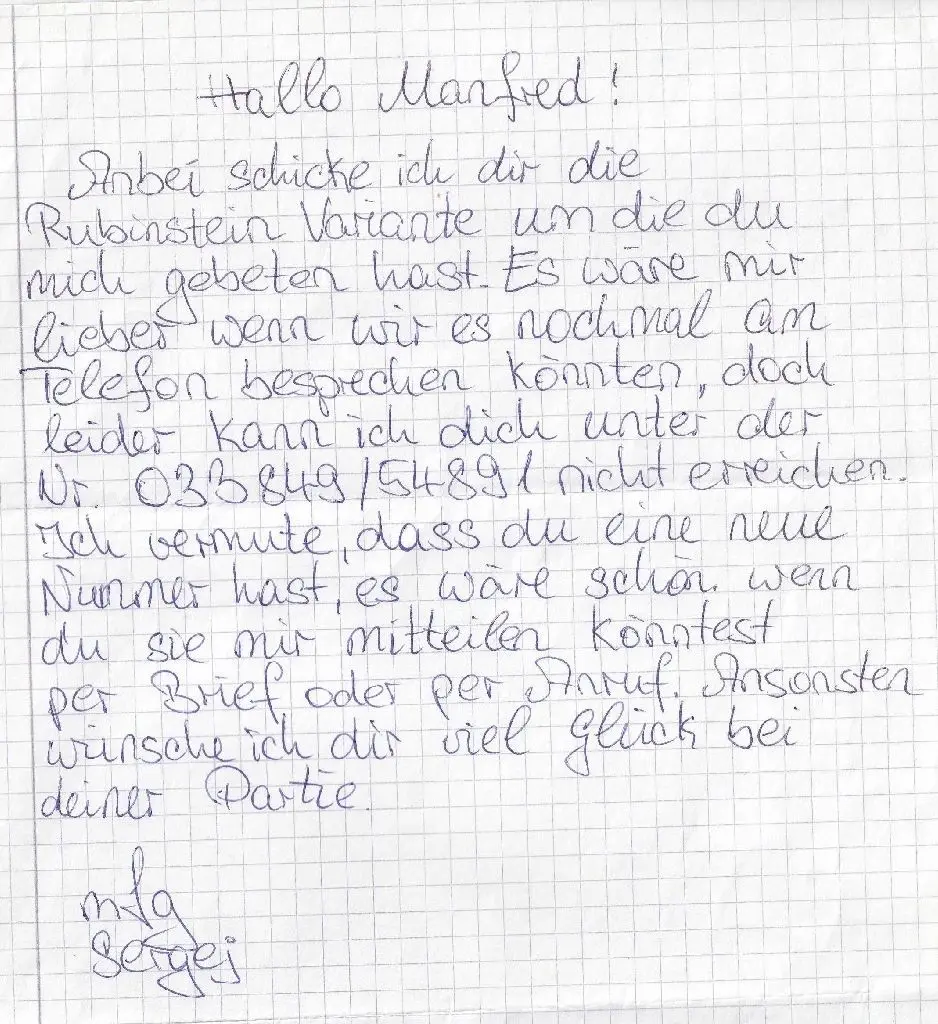 Hallo Manfred!
Anbei schicke ich dir die
Rubinstein Variante um die du
mich gebeten hast. Es wäre mir
lieber wenn wir es nochmal am
Telefon besprechen könnten, doch
leider kann ich dich unter der
Nr. 033849/54891 nicht erreichen.
Ich vermute, dass du eine neue
Nummer hast, es wäre schön wenn
du sie mir mitteilen könntest
per Brief oder per Anruf. Ansonsten
wünsche ich dir viel Glück bei
deiner Partie.
mfg
Sergej